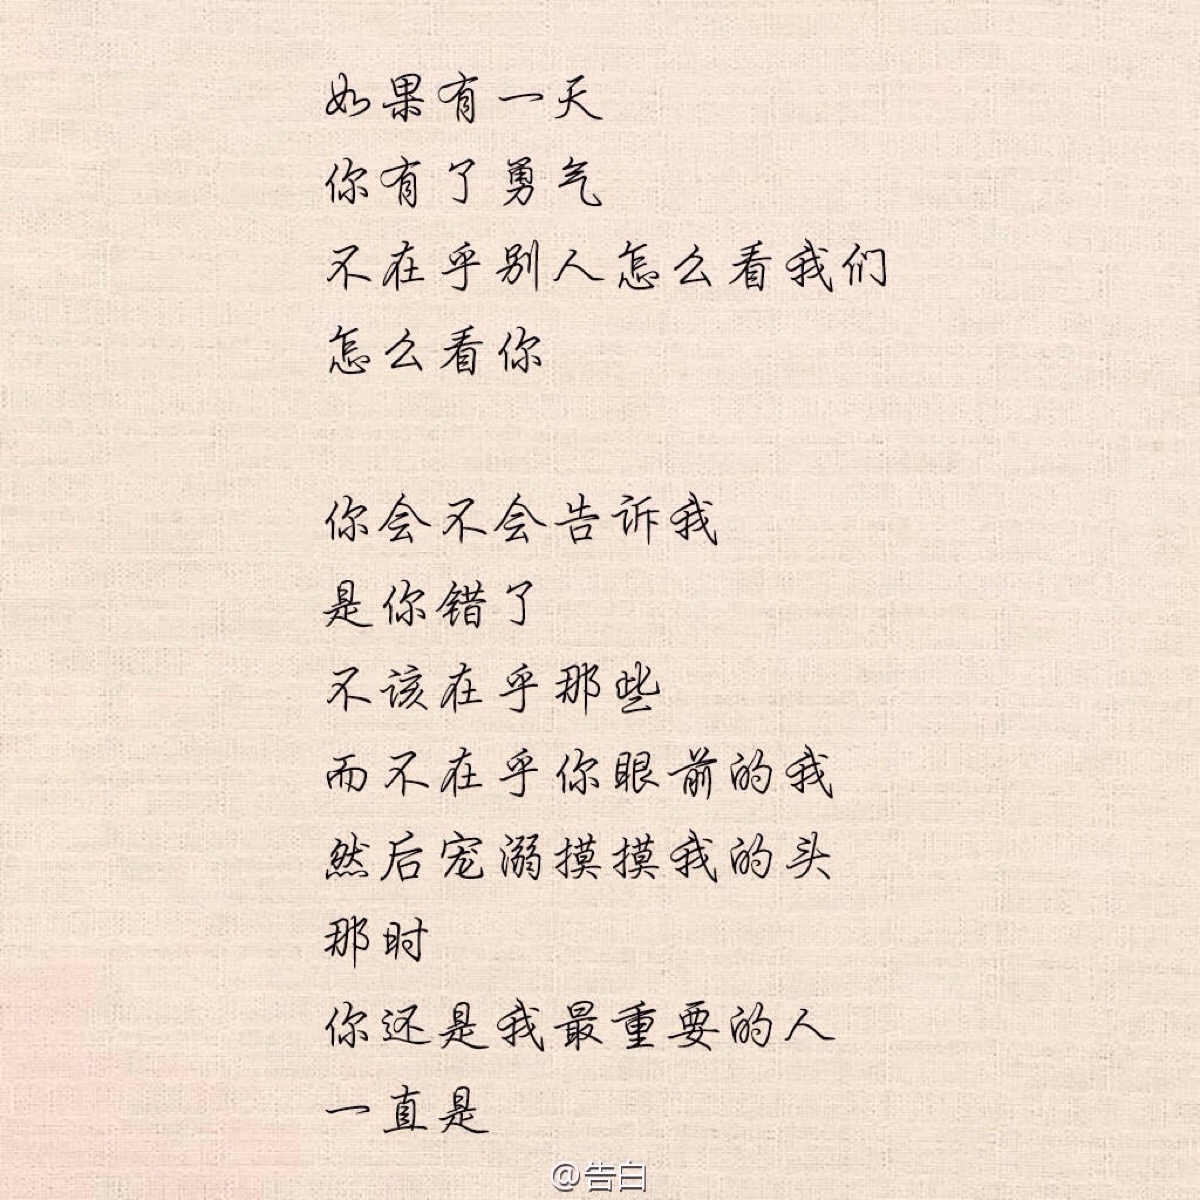 如果有一天
你有了勇气
不在乎别人怎么看我们
怎么看你
你会不会告诉我
是你错了
不该在乎那些
而不在乎你眼前的我
然后宠溺摸摸我的头
那时
你还是我最重要的人
一直是
@告白